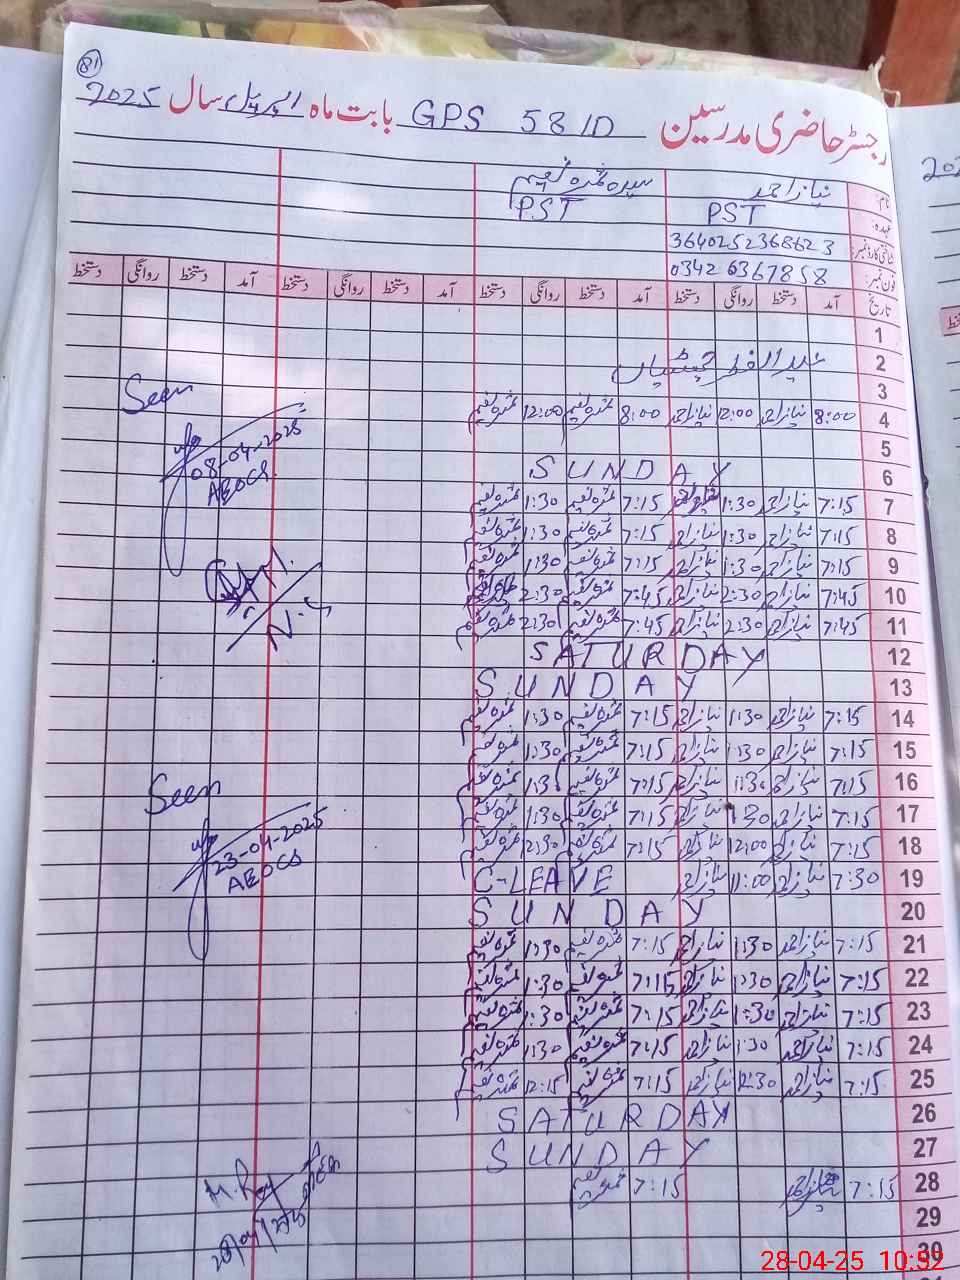 81
رجسٹر حاضری مدرسین GPS 58 1D بابت ماہ اپریل سال 2025
نام: نیاز احمد سیدہ نمرہ نعیم
عہدہ: PST PST
شناختی کارڈ نمبر: 3640252368623
فون نمبر: 0342 6367858
تاریخ آمد دستخط روانگی دستخط آمد دستخط روانگی دستخط آمد دستخط روانگی دستخط آمد دستخط روانگی دستخط
1
2 عید الفطر چھٹیاں
3
4 8:00 نیاز احمد 12:00 نیاز احمد 8:00 نمرہ نعیم 12:00 نمرہ نعیم
5
6 SUNDAY
7 7:15 نیاز احمد 1:30 نیاز احمد 7:15 نمرہ نعیم 1:30 نمرہ نعیم
8 7:15 نیاز احمد 1:30 نیاز احمد 7:15 نمرہ نعیم 1:30 نمرہ نعیم
9 7:15 نیاز احمد 1:30 نیاز احمد 7:15 نمرہ نعیم 1:30 نمرہ نعیم
10 7:45 نیاز احمد 2:30 نیاز احمد 7:45 نمرہ نعیم 2:30 نمرہ نعیم
11 7:45 نیاز احمد 2:30 نیاز احمد 7:45 نمرہ نعیم 2:30 نمرہ نعیم
12 SATURDAY
13 SUNDAY
14 7:15 نیاز احمد 1:30 نیاز احمد 7:15 نمرہ نعیم 1:30 نمرہ نعیم
15 7:15 نیاز احمد 1:30 نیاز احمد 7:15 نمرہ نعیم 1:30 نمرہ نعیم
16 7:15 نیاز احمد 1:30 نیاز احمد 7:15 نمرہ نعیم 1:30 نمرہ نعیم
17 7:15 نیاز احمد 1:30 نیاز احمد 7:15 نمرہ نعیم 1:30 نمرہ نعیم
18 7:15 نیاز احمد 12:00 نیاز احمد 7:15 نمرہ نعیم 12:30 نمرہ نعیم
19 7:30 نیاز احمد 11:00 نیاز احمد C-LEAVE
20 SUNDAY
21 7:15 نیاز احمد 1:30 نیاز احمد 7:15 نمرہ نعیم 1:30 نمرہ نعیم
22 7:15 نیاز احمد 1:30 نیاز احمد 7:15 نمرہ نعیم 1:30 نمرہ نعیم
23 7:15 نیاز احمد 1:30 نیاز احمد 7:15 نمرہ نعیم 1:30 نمرہ نعیم
24 7:15 نیاز احمد 1:30 نیاز احمد 7:15 نمرہ نعیم 1:30 نمرہ نعیم
25 7:15 نیاز احمد 12:30 نیاز احمد 7:15 نمرہ نعیم 12:15 نمرہ نعیم
26 SATURDAY
27 SUNDAY
28 7:15 نیاز احمد 7:15 نمرہ نعیم
29
30
Seen
08-04-2025
AEOCS
Seen
23-04-2025
AEOCS
28-04-25 10:52